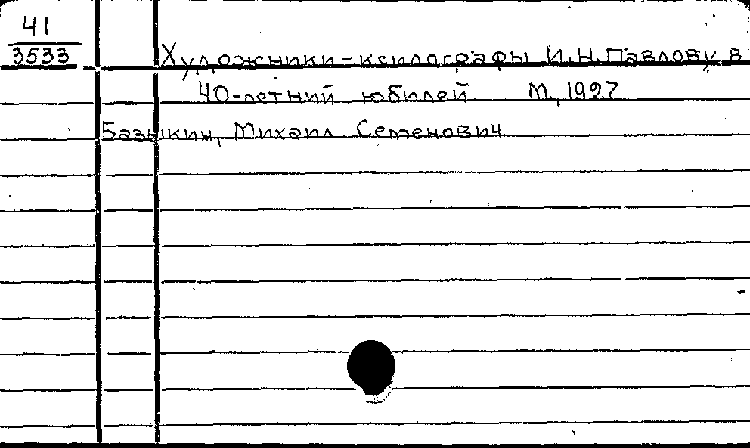 41
3533
Художники-ксилографы И.Н.Павлову в
40-летний юбилей М, 1927
Базыкин, Михаил Семенович